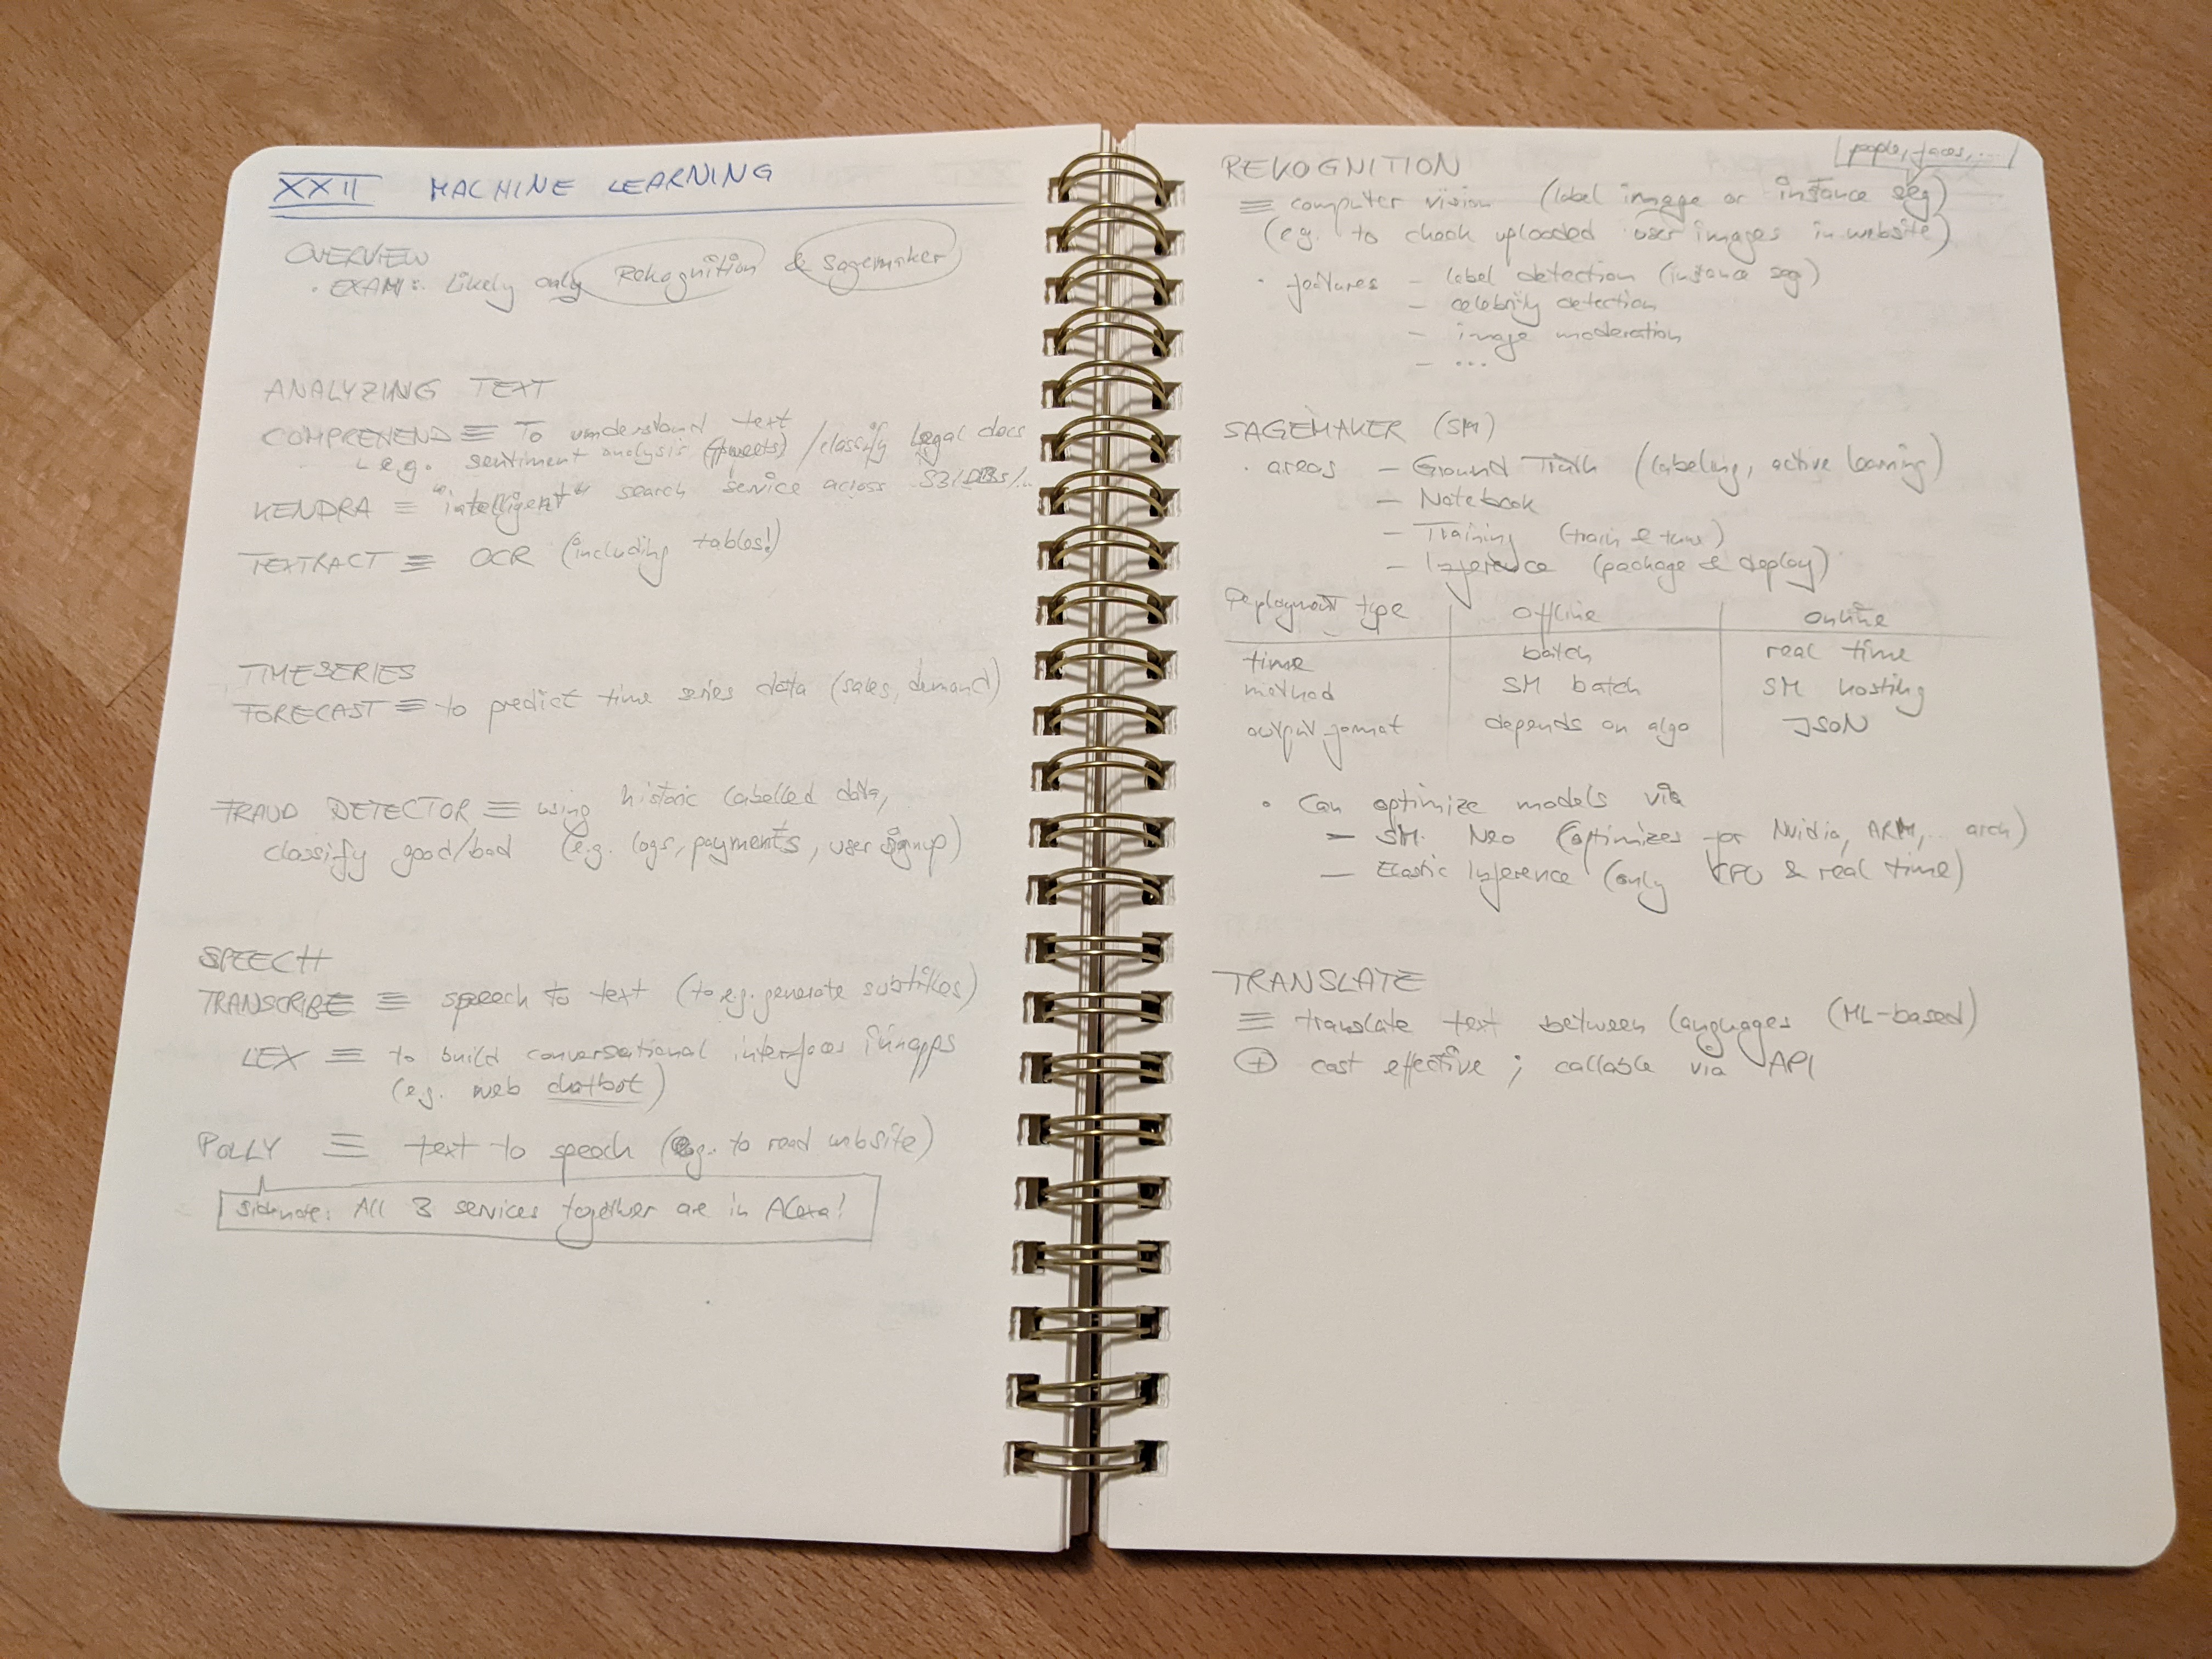 XXII MACHINE LEARNING
OVERVIEW
· EXAM: Likely only Rekognition & Sagemaker
ANALYZING TEXT
COMPREHEND ≡ To understand text
e.g. sentiment analysis (tweets) / classify legal docs
KENDRA ≡ "intelligent" search service across S3/DBs/...
TEXTRACT ≡ OCR (including tables!)
TIMESERIES
FORECAST ≡ to predict time series data (sales, demand)
FRAUD DETECTOR ≡ using historic labelled data,
classify good/bad (e.g. logs, payments, user signup)
SPEECH
TRANSCRIBE ≡ speech to text (to e.g. generate subtitles)
LEX ≡ to build conversational interfaces in apps
(e.g. web chatbot)
POLLY ≡ text to speech (e.g. to read website)
Sidenote: All 3 services together are in Alexa!
REKOGNITION
people, faces, ...
≡ computer vision (label image or instance seg)
(e.g. to check uploaded user images in website)
· features - label detection (instance seg)
- celebrity detection
- image moderation
- ...
SAGEMAKER (SM)
· areas - Ground Truth (labeling, active learning)
- Notebook
- Training (train & tune)
- Inference (package & deploy)
Deployment type | offline | online
time | batch | real time
method | SM batch | SM hosting
output format | depends on algo | JSON
· Can optimize models via
- SM Neo (optimizes for Nvidia, ARM, ... arch)
- Elastic Inference (only CPU & real time)
TRANSLATE
≡ translate text between languages (ML-based)
⊕ cost effective ; callable via API